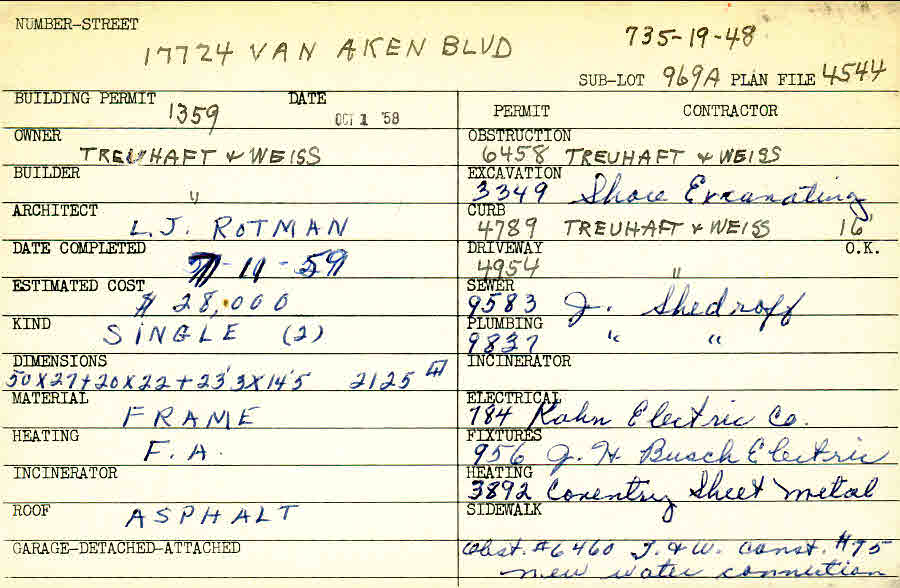 NUMBER-STREET
17724 VAN AKEN BLVD 735-19-48
SUB-LOT 969A PLAN FILE 4544
BUILDING PERMIT 1359 DATE OCT 1 '58
PERMIT CONTRACTOR
OWNER TREUHAFT & WEISS
OBSTRUCTION 6458 TREUHAFT & WEISS
BUILDER "
EXCAVATION 3349 Shore Excavating
ARCHITECT L.J. ROTMAN
CURB 4789 TREUHAFT & WEISS 16'
DATE COMPLETED 11-59
DRIVEWAY 4954 " O.K.
ESTIMATED COST $ 28,000
SEWER 9583 J. Shedroff
KIND SINGLE (2)
PLUMBING 9837 " "
DIMENSIONS 50X27+20X22+23'3X14'5 2125
INCINERATOR
MATERIAL FRAME
ELECTRICAL 784 Kahn Electric Co.
HEATING F.A.
FIXTURES 956 J. H Busch Electric
INCINERATOR
HEATING 3892 Coventry Sheet Metal
ROOF ASPHALT
SIDEWALK
GARAGE-DETACHED-ATTACHED
Obst. #6460 T. & W. Const. #75
new water connection